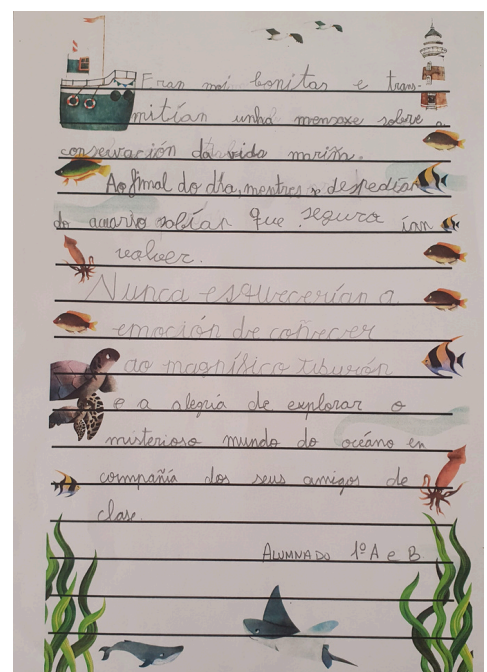 Eran moi bonitas e trans-
mitían unha mensaxe sobre a
conservación da vida mariña.
Ao final do día, mentres se despedían
do acuario sabían que seguro ían
volver.
Nunca esquecerían a
emoción de coñecer
ao magnífico tiburón
e a alegria de explorar o
misterioso mundo do océano en
compañía dos seus amigos de
clase.
ALUMNADO 1º A e B